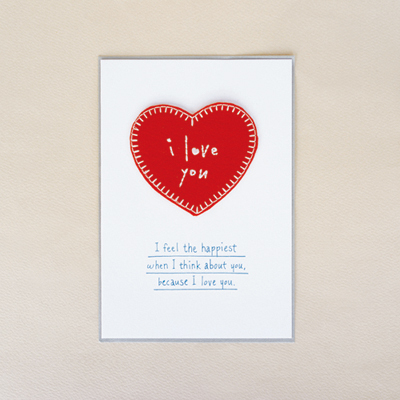 i love
you
I feel the happiest
when I think about you,
because I love you.